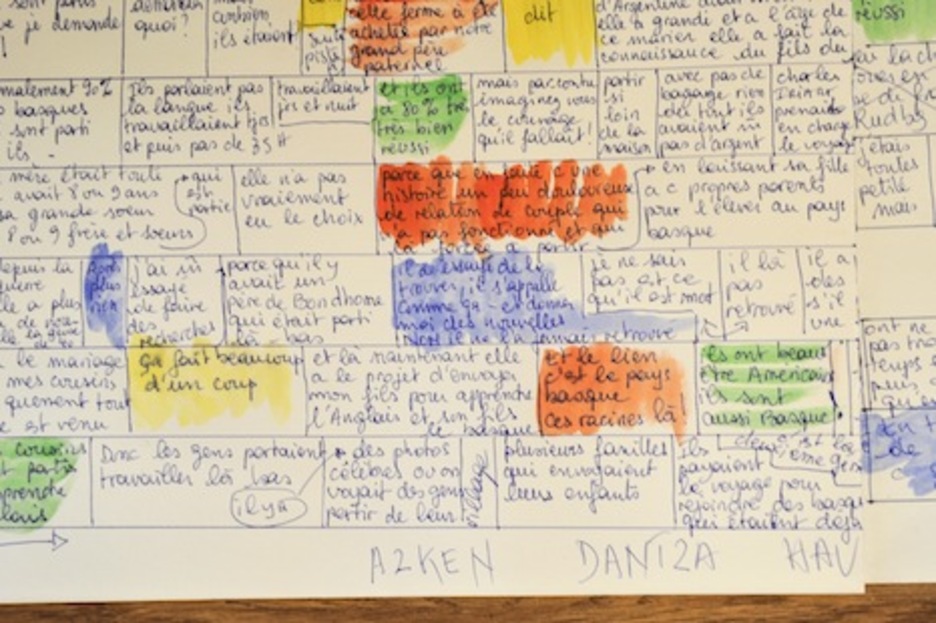 je demande
quoi?
ils étaient
cette ferme a été
achetée par notre
grand père
paternel
dit
elle a grandi et a l'âge de
ce marier elle a fait la
connaissance du fils du
réussi
malement 90%
basques
sont parti
ils -
Ils parlaient pas
la langue ils
travaillaient tjrs
et puis pas de 35H
travaillaient
jrs et nuit
et ils ont
a 80% tres
très bien
réussi
mais par contre
imaginez vous
le courage
qu'il fallait!
partir
si
loin
de la
maison
avec pas de
bagage rien
du tout ils
avaient ni
pas d'argent
charles
prenait
en charge
le voyage
mère était toute
avait 8 ou 9 ans
sa grande soeur
8 ou 9 frère et soeurs
qui
est
partie
elle n'a pas
vraiement
eu le choix
parce que en faite c'une
histoire un peu douloureuse
de relation de couple qui
n'a pas fonctionné et qui
l'a forcée a partir
en laissant sa fille
a c propres parents
pour l'élever au pays
basque
étais
toutes
petite
mais
depuis la
guerre
a plus
après
plus
rien
j'ai
essayé
de faire
des
recherches
parce qu'il y
avait un
père de Bondhome
qui était parti
là bas
il a essayé de le
trouver, il s'appelle
comme ça et donner
moi des nouvelles
il ne l'a jamais retrouvé
je ne sais
pas est ce
qu'il est mort
il l'a
pas
retrouvé
il a
des
s'il
une
le mariage
mes cousins
quement tout
est venu
ça fait beaucoup
d'un coup
et là maintenant elle
a le projet d'envoyer
mon fils pour apprendre
l'Anglais et son fils
le basque
et le lien
c'est le pays
basque
ces racines là!
ils ont beau
être Americain
ils sont
aussi Basque
cousins
parti
Donc les gens partaient
travailler là bas
il y a
des photos
célèbres ou on
voyait des gens
partir de leur
village
plusieurs familles
qui envoyaient
leurs enfants
Ils
payaient
le voyage pour
rejoindre des basque
qui étaient déjà
AZKEN DANTZA HAU